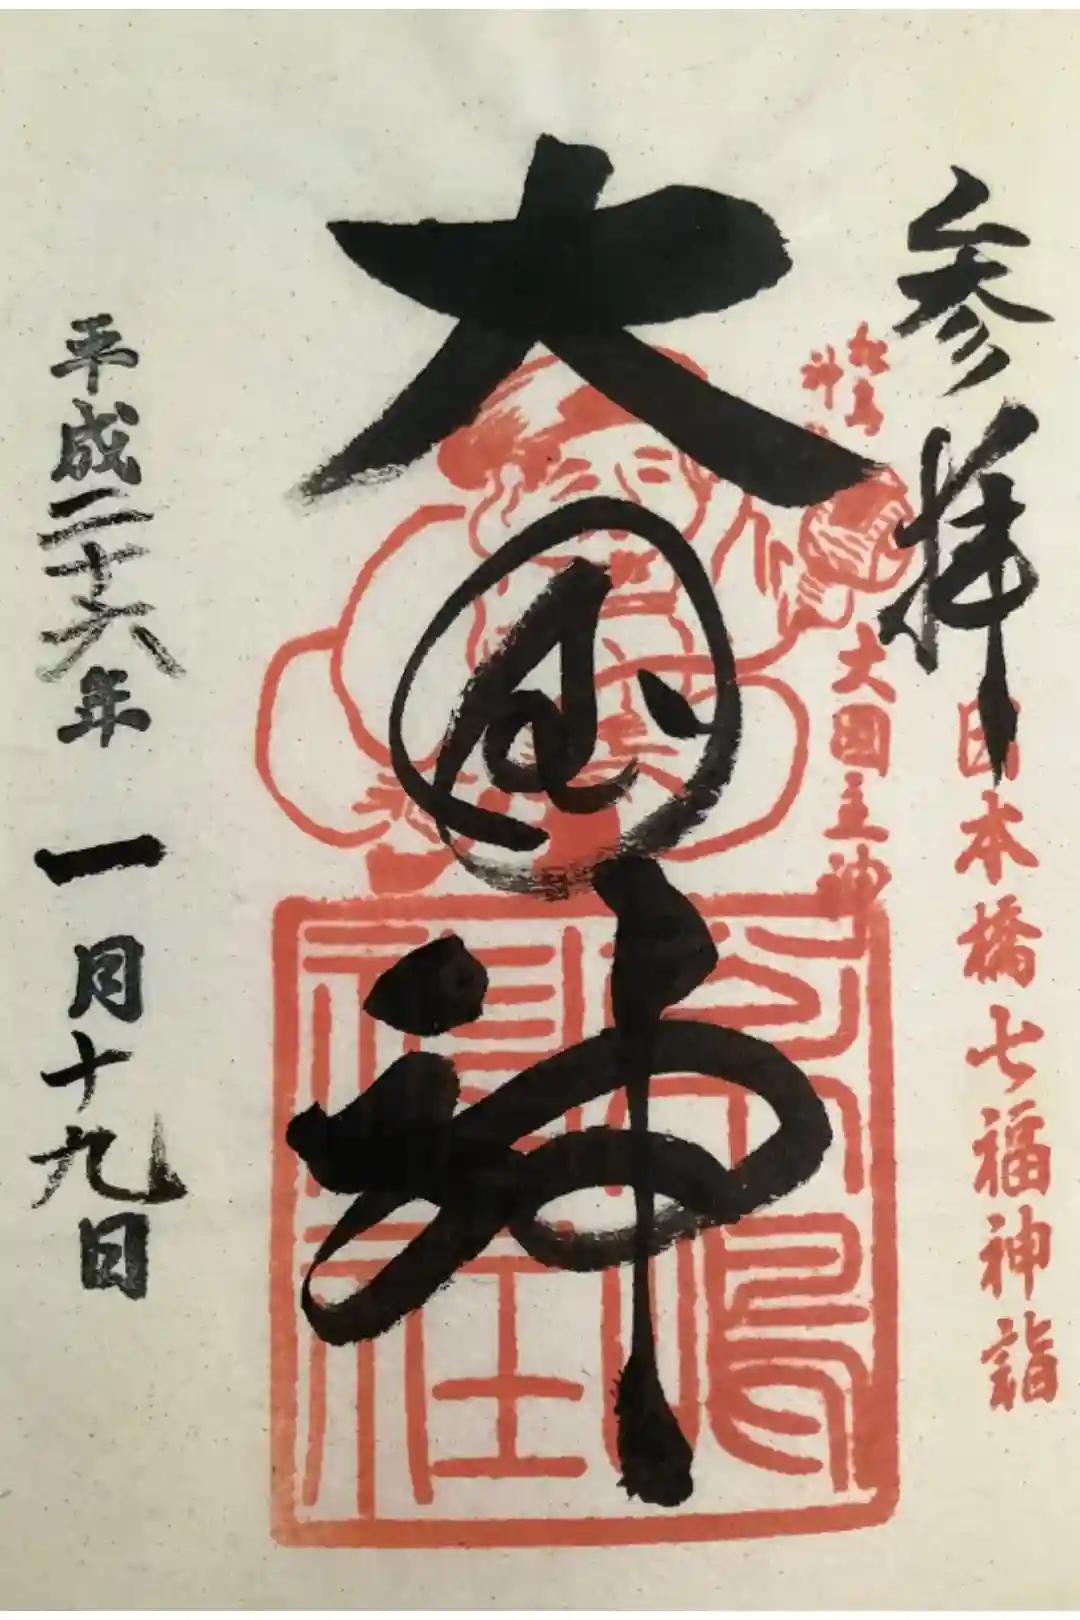 参拝
日本橋七福神詣
松島
神
大國主神
大国神
松島
神社
平成二十六年 一月十九日